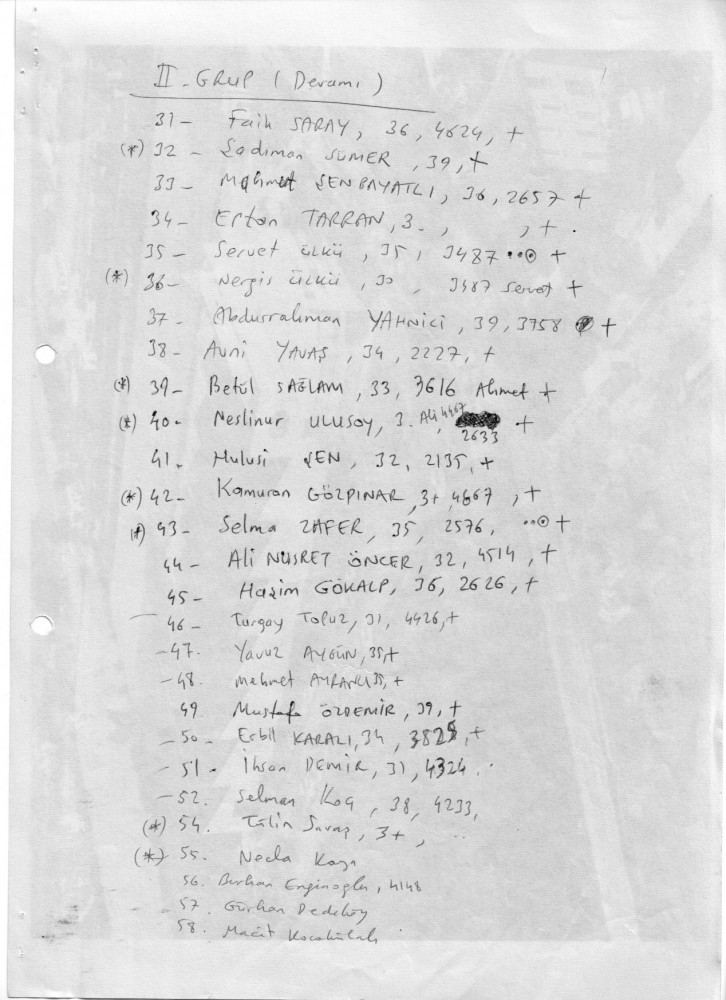 II. GRUP (Devamı)
31- Faik SARAY, 36, 4624, +
(*) 32- Sadıman SÜMER, 39, +
33- Mehmet ŞENBAYATLI, 36, 2657 +
34- Ertan TARRAN, 3-, , +
35- Servet ülkü, 35, 3487 ••⊙ +
(*) 36- Nergis ülkü, 30, 3487 Servet +
37- Abdurrahman YAHNİCİ, 39, 3758 +
38- Avni YAVAŞ, 34, 2227, +
(*) 39- Betül SAĞLAM, 33, 3616 Ahmet +
(*) 40- Neslinur ULUSOY, 3. Ali 4467 2633 +
41. Hulusi ŞEN, 32, 2135, +
(*) 42- Kamuran GÖZPINAR, 3+, 4667, +
(*) 43- Selma ZAFER, 35, 2576, ••⊙ +
44- Ali NUSRET ÖNCER, 32, 4514, +
45- Hazim GÖKALP, 36, 2626, +
46- Turgay Topuz, 31, 4426, +
-47. Yavuz AYGÜN, 35, +
-48. Mehmet AYRANCI, 35, +
49 Mustafa ÖZDEMİR, 39, +
-50- Erbil KARALI, 34, 3825, +
-51- İhsan DEMİR, 31, 4324.
-52. Selman Koç, 38, 4233,
(*) 54. Tülin Savaş, 3+,
(*) 55. Necla Kaya
56. Burhan Enginoğlu, 4148
57. Gürhan Dedeköy
58. Macit Kocakülah